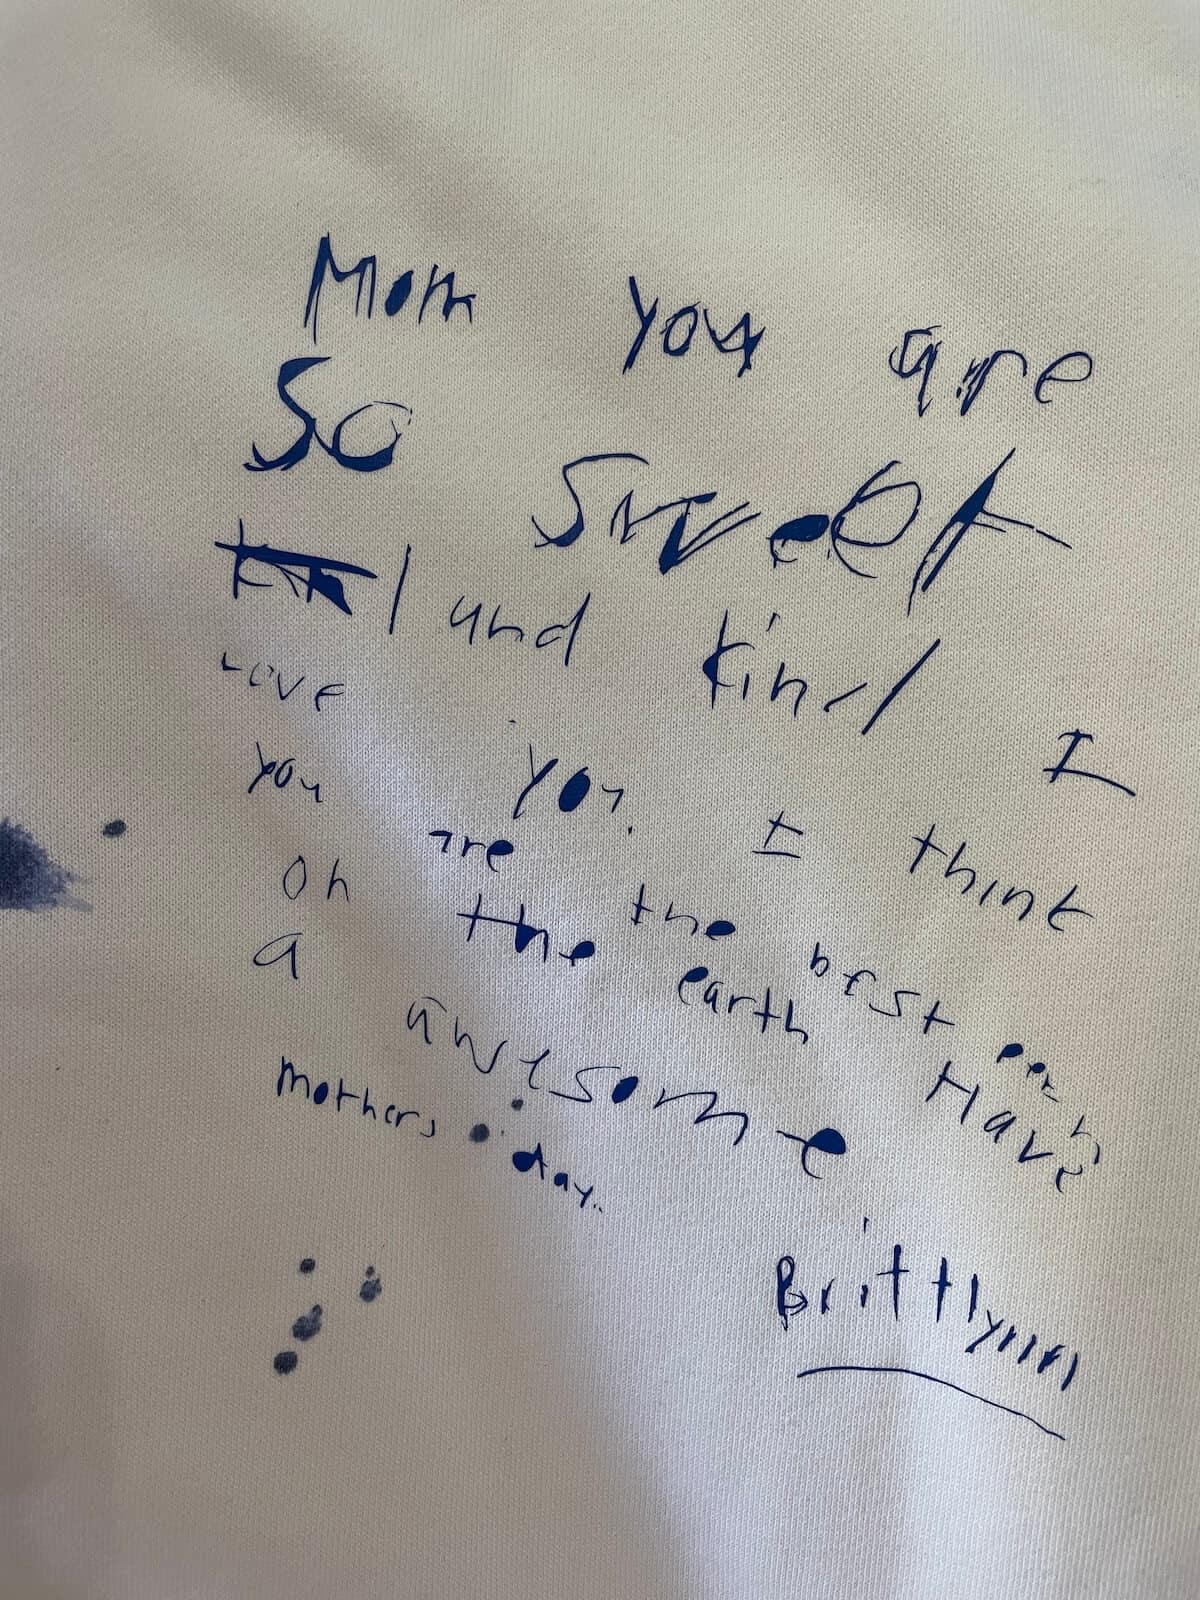 Mom you are
so sweet
and kind I
love you. I think
you are the best
on the earth Have
a awesome
mothers day.
Brittlynn